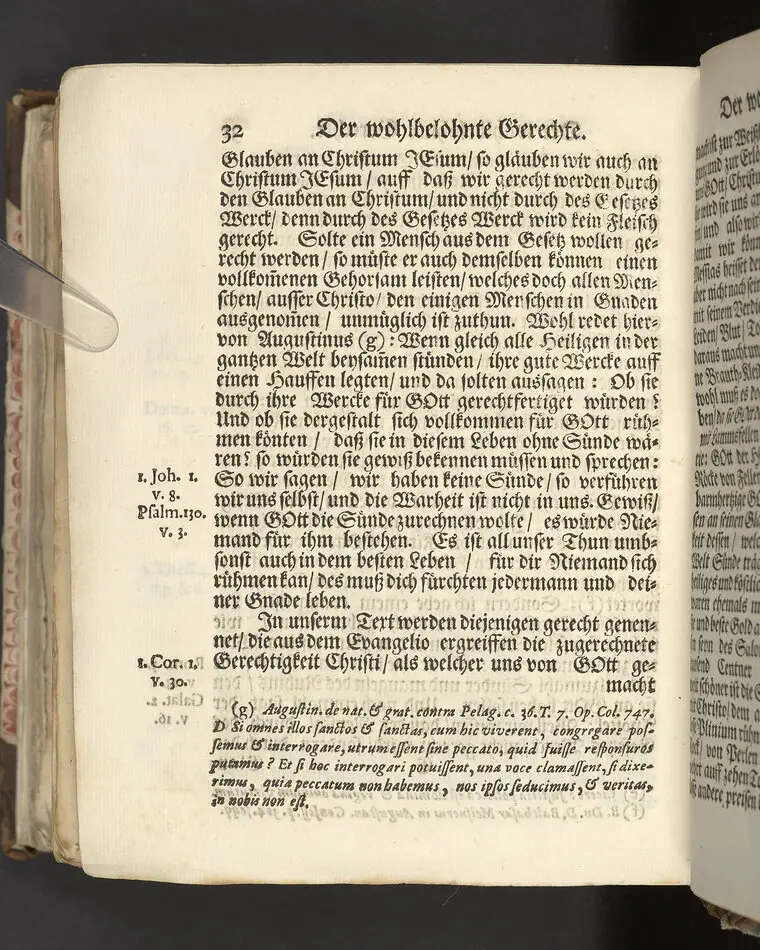 32 Der wohlbelohnte Gerechte.
Glauben an Christum JEsum/ so gläuben wir auch an
Christum JEsum/ auff daß wir gerecht werden durch
den Glauben an Christum/ und nicht durch des Gesetzes
Werck/ denn durch des Gesetzes Werck wird kein Fleisch
gerecht. Solte ein Mensch aus dem Gesetz wollen ge-
recht werden/ so müste er auch demselben können einen
vollkom̃enen Gehorsam leisten/ welches doch allen Men-
schen/ ausser Christo/ den einigen Menschen in Gnaden
ausgenom̃en/ unmüglich ist zuthun. Wohl redet hier-
von Augustinus (g): Wenn gleich alle Heiligen in der
gantzen Welt beysam̃en stünden/ ihre gute Wercke auff
einen Hauffen legten/ und da solten aussagen: Ob sie
durch ihre Wercke für GOtt gerechtfertiget würden?
Und ob sie dergestalt sich vollkommen für GOtt rüh-
men könten/ daß sie in diesem Leben ohne Sünde wä-
ren? so würden sie gewiß bekennen müssen und sprechen:
1. Joh. 1. So wir sagen/ wir haben keine Sünde/ so verführen
v. 8. wir uns selbst/ und die Warheit ist nicht in uns. Gewiß/
Psalm. 130. wenn GOtt die Sünde zurechnen wolte/ es würde Nie-
v. 3. mand für ihm bestehen. Es ist all unser Thun umb-
sonst auch in dem besten Leben/ für dir Niemand sich
rühmen kan/ des muß dich fürchten jedermann und dei-
ner Gnade leben.
In unserm Text werden diejenigen gerecht genen-
net/ die aus dem Evangelio ergreiffen die zugerechnete
1. Cor. 1. Gerechtigkeit Christi/ als welcher uns von GOtt ge-
v. 30. macht
(g) Augustin. de nat. & grat. contra Pelag. c. 36. T. 7. Op. Col. 747.
D Si omnes illos sanctos & sanctas, cum hic viverent, congregare pos-
semus & interrogare, utrum essent sine peccato, quid fuisse responsuros
putamus? Et si hoc interrogari potuissent, una voce clamassent, si dixe-
rimus, quia peccatum non habemus, nos ipsos seducimus, & veritas,
in nobis non est.